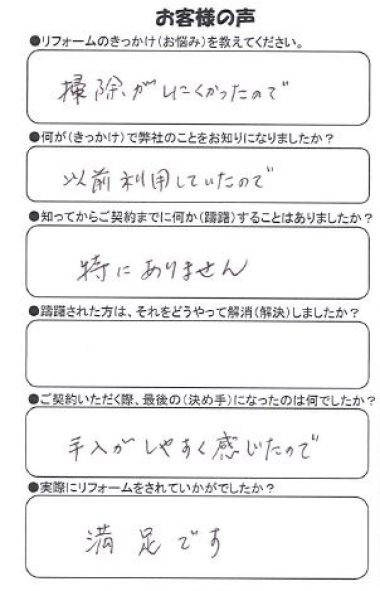 お客様の声
●リフォームのきっかけ(お悩み)を教えてください。
掃除がしにくかったので
●何が(きっかけ)で弊社のことをお知りになりましたか？
以前利用していたので
●知ってからご契約までに何か(躊躇)することはありましたか？
特にありません
●躊躇された方は、それをどうやって解消(解決)しましたか？
●ご契約いただく際、最後の(決め手)になったのは何でしたか？
手入がしやすく感じたので
●実際にリフォームをされていかがでしたか？
満足です